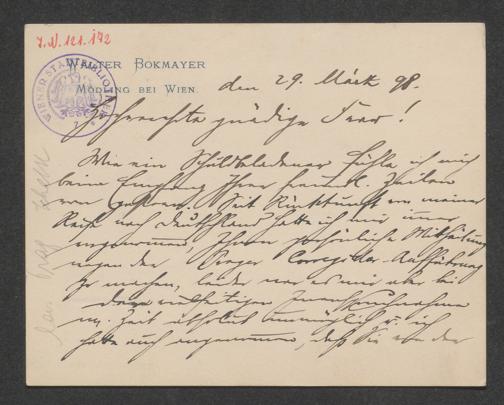 I.N. 121.172
WALTER BOKMAYER
MÖDLING BEI WIEN.
WIENER STADTBIBLIOTHEK
den 29. März 98.
Hochverehrte gnädige Frau!
Wie ein Schuldbeladener fühle ich mich
beim Empfang Ihrer freundl. Zeilen
von gestern. Seit Rückkunft von meiner
Reise nach Deutschland hatte ich mir immer
vorgenommen Ihnen persönliche Mittheilung
wegen der Prager Corregidor-Aufführung
zu machen, leider war es mir aber bei
der vielseitigen Inanspruchnahme
m. Zeit absolut unmöglich u. ich
hatte auch angenommen, daß Sie von der